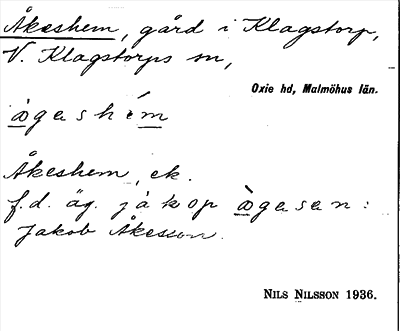 Åkeshem, gård i Klagstorp,
V. Klagstorps sn,
Oxie hd, Malmöhus län.
ågeshém
Åkeshem, ek.
f.d. äg. jákop ågesen:
Jakob Åkesson.
NILS NILSSON 1936.